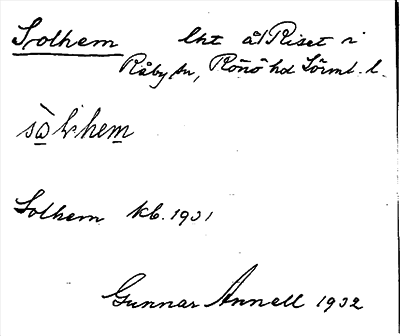 Solhem lht å Riset i
Råby sn, Rönö hd Sörml. l.
Solhem kb. 1931
Gunnar Annell 1932